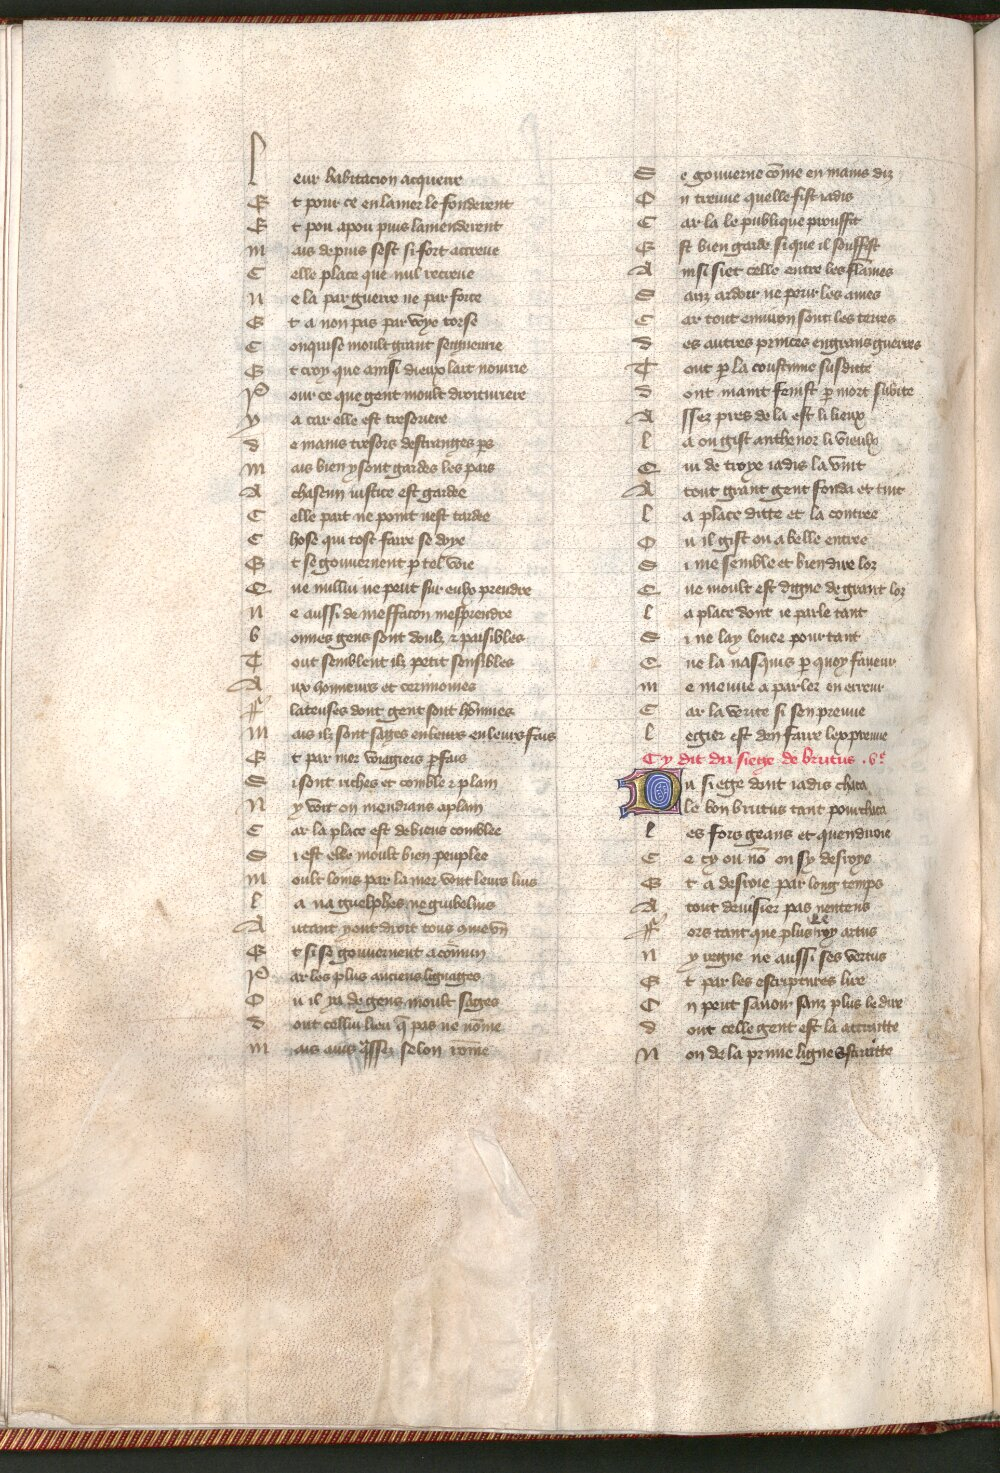 Leur habitacion acquerre
Et pour ce en la mer le fonderent
Et pou apou puis lamenderent
Mais depuis sest si fort accreue
Celle place que nul retreue
Ne la par guerre ne par force
Et a non pas par voye torse
Conquise moult grant seigneurie
Et croy que ainsi dieux lait nourrie
Pour ce que gent moult droituriere
Y a car elle est tresoriere
De mains tresors destranges pars
Mais bien y sont gardes les pars
A chascun iustice est gardee
Celle part ne point nest tardee
Chose qui tost faire se doye
Et se gouvernent p tel voie
Que nulluy ne peut sur eulx prendre
Ne aussi de meffacon mesprendre
Bonnes gens sont doulz z paisibles
Tout semblent ilz petit sensibles
Aux honneurs et cerimonies
Flateuses dont gent sont honnies
Mais ilz sont sages en leurs en leurs fais
Et par mer voiagiers pfais
Si sont riches et comble z plain
Ny voit on mendians aplain
Car la place est de biens comblee
Si est elle moult bien peuplee
Moult loins par la mer vont leurs lins
La na guelphes ne guibelins
Autant y ont droit tous que vn
Et si se gouvernent a cōmun
Par les plus anciens lignages
Ou il ya de gens moult sages
Dont cellui lieu q̄ pas ne nōme
Mais aues assez selon rōme
Se gouverne cōme en mains diz
On treuve quelle fist iadis
Car la le publique prouffit
Est bien garde si que il souffist
Ainsi siet celle entre les flāmes
Sanz ardoir ne pour les ames
Car tout environ sont les terres
Des autres princes en grans guerres
Tout p la coustume susditte
Dont maint fenist p mort subite
Assez pres de la est li lieux
La ou gist anthenor li vieulx
Qui de troye iadis la vint
A tout grant gent fonda et tint
La place ditte et la contree
Ou il gist ou a belle entree
Si me semble et bien dire lor
Que moult est digne de grant lor
La place dont ie parle tant
Si ne lay louee pour tant
Que la nasquis p quoy faueur
Me meuve a parler en erreur
Car la verite si sen preuve
Legier est den faire lexpreuve
Cy dit du siege de brutus . 6e
Du siege dont iadis chaca
Le bon brutus tant pourchaca
Les fors geans et quenduroie
Ce cy ou nō on sy desroye
Et a desroie par long temps
A tout deviser pas nentens
Fors tant que plus le roy artus
Ny regne ne aussi ses vertus
Et par les escriptures lire
On peut savoir sanz plus le dire
Dont celle gent est la attraitte
Non de la prime ligne estraitte